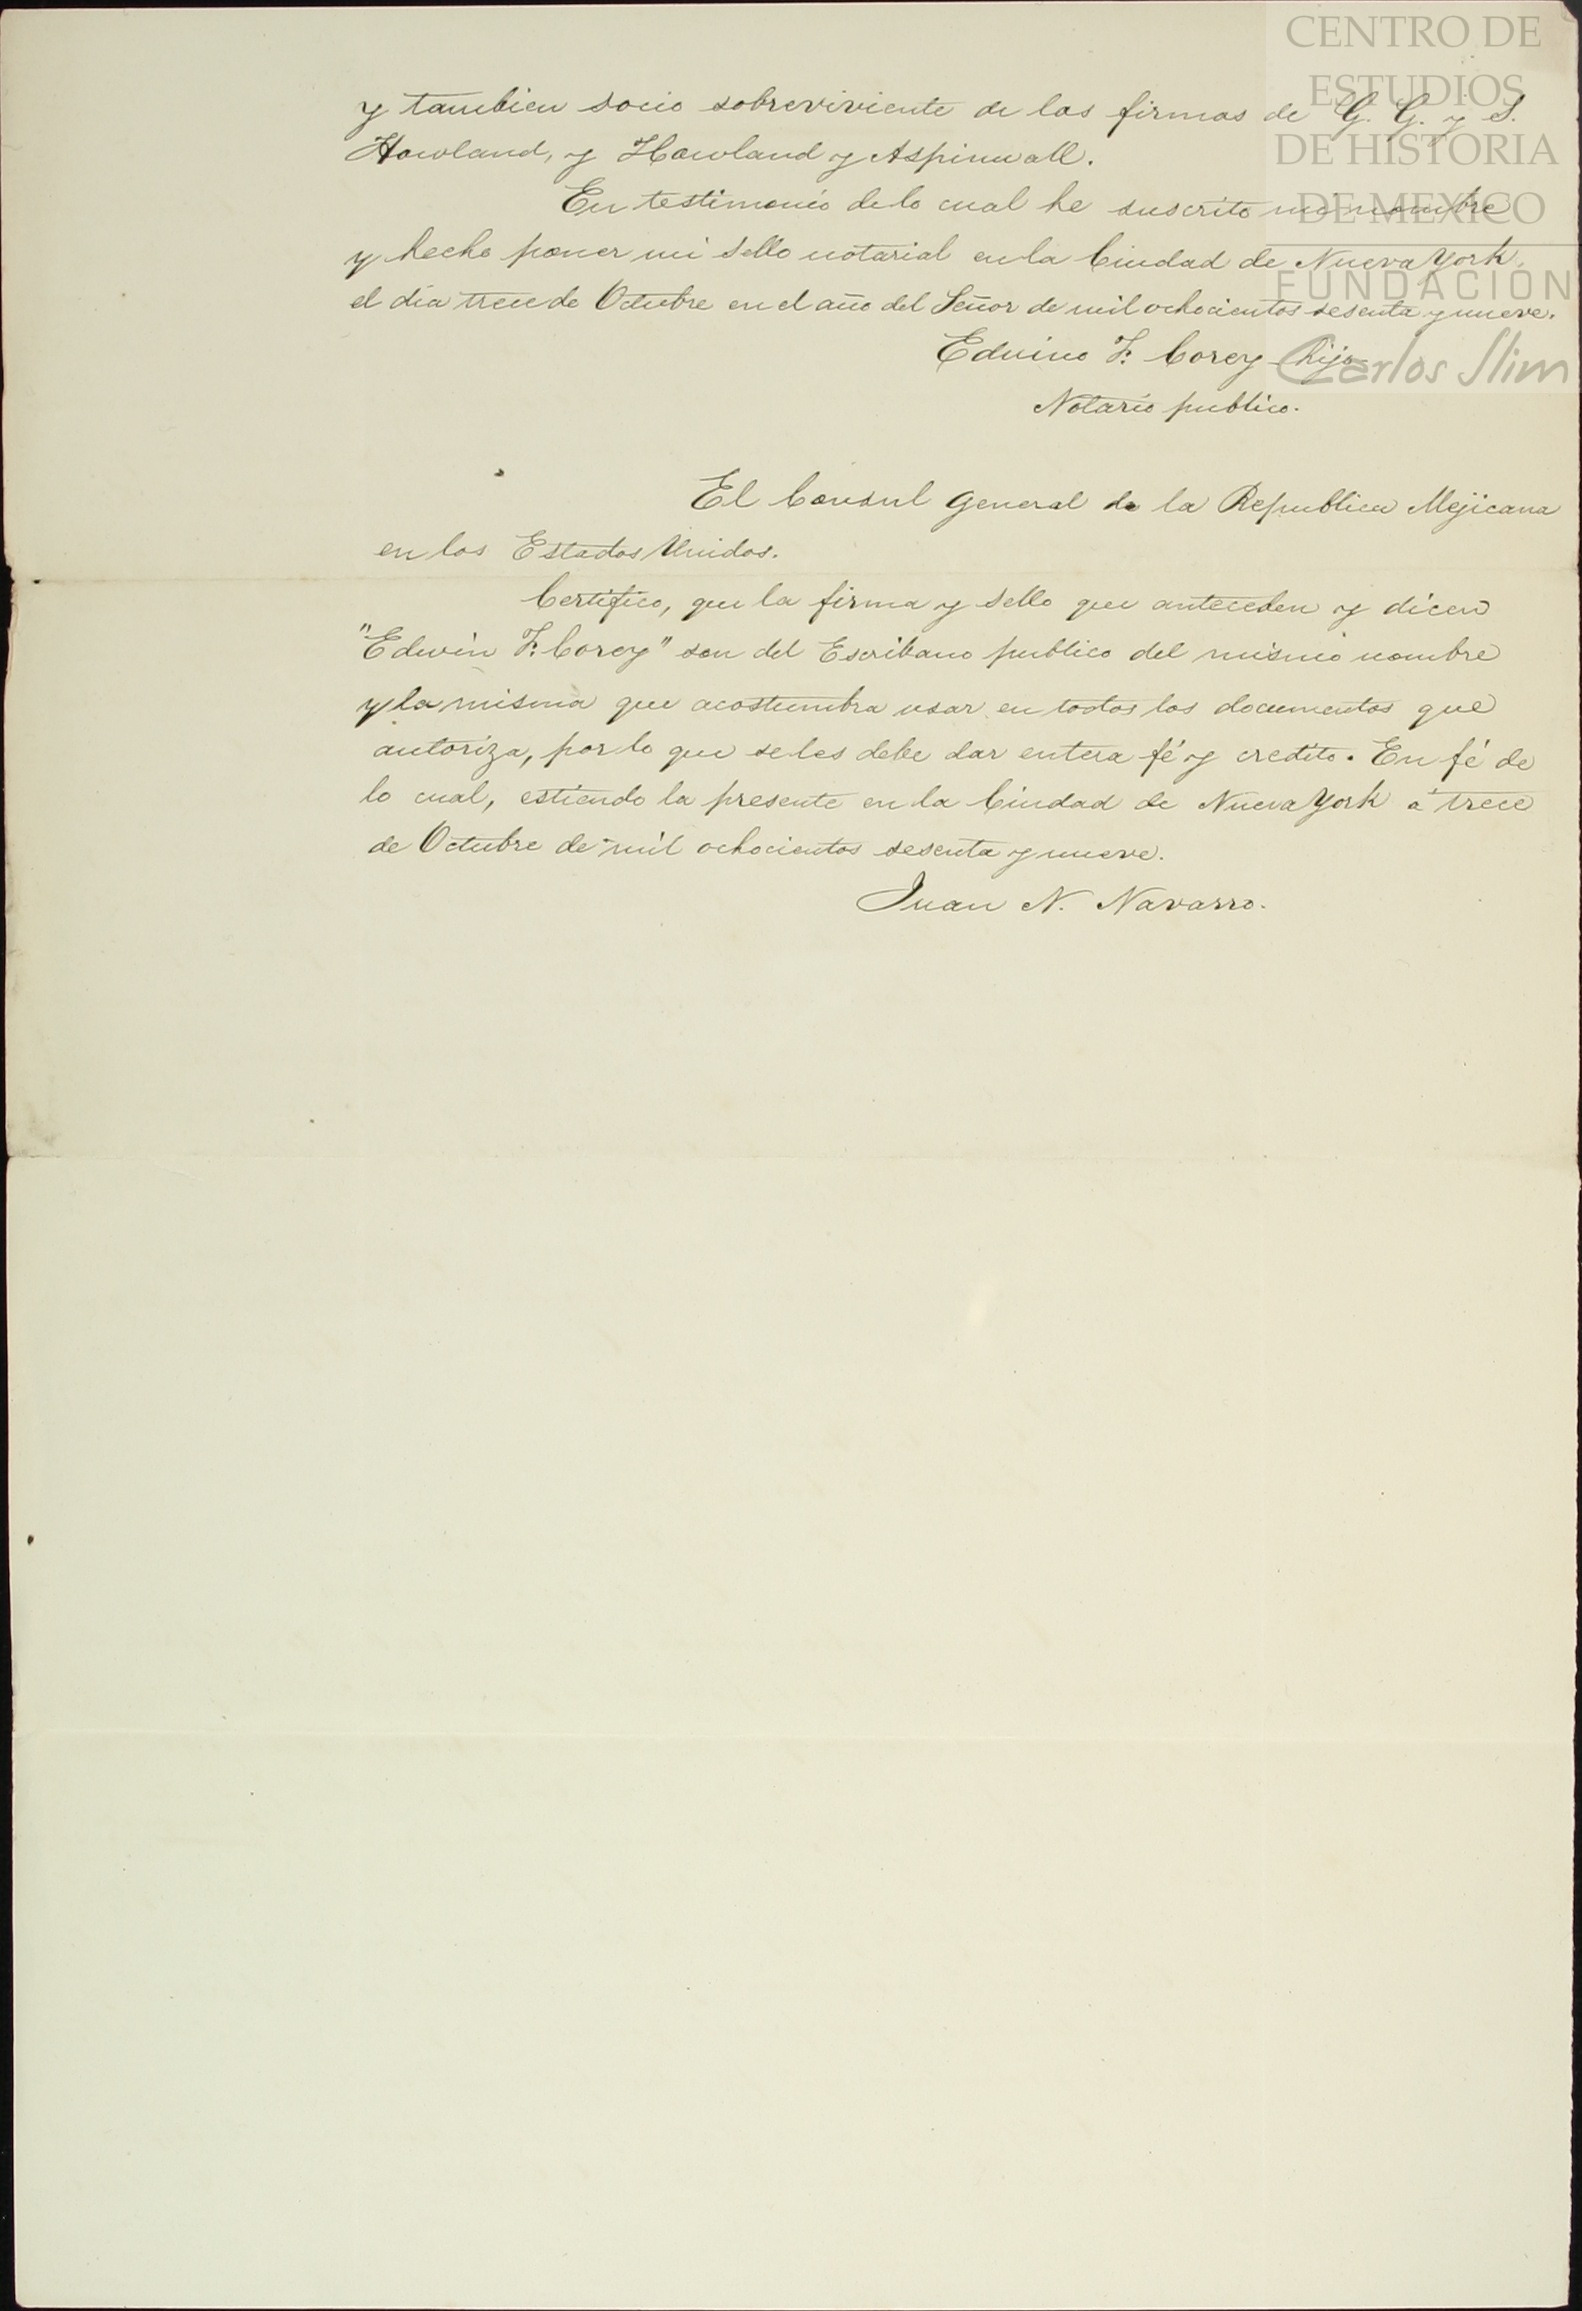 CENTRO DE
ESTUDIOS
DE HISTORIA
DE MEXICO
FUNDACIÓN
Carlos Slim
y tambien socio sobreviviente de las firmas de G. G. y S.
Howland, y Howland y Aspinwall.
En testimonio de lo cual he suscrito mi nombre
y hecho poner mi sello notarial en la Ciudad de Nueva York,
el dia trece de Octubre en el año del Señor de mil ochocientos sesenta y nueve.
Edwino F. Corey hijo
Notario publico.
El Consul General de la Republica Mejicana
en los Estados Unidos.
Certifico, que la firma y sello que anteceden y dicen
"Edwin F. Corey" son del Escribano publico del mismo nombre
y la misma que acostumbra usar en todos los documentos que
autoriza, por lo que se les debe dar entera fé y credito. En fé de
lo cual, estiendo la presente en la Ciudad de Nueva York á trece
de Octubre de mil ochocientos sesenta y nueve.
Juan N. Navarro.